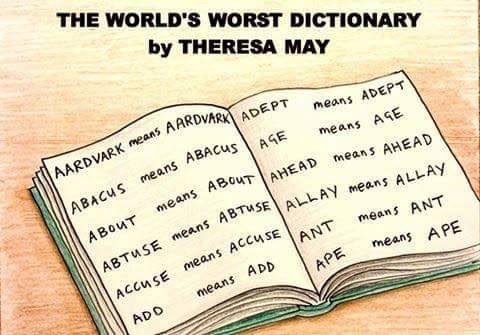 THE WORLD'S WORST DICTIONARY
by THERESA MAY
AARDVARK means AARDVARK
ABACUS means ABACUS
ABOUT means ABOUT
ABTUSE means ABTUSE
ACCUSE means ACCUSE
ADD means ADD
ADEPT means ADEPT
AGE means AGE
AHEAD means AHEAD
ALLAY means ALLAY
ANT means ANT
APE means APE